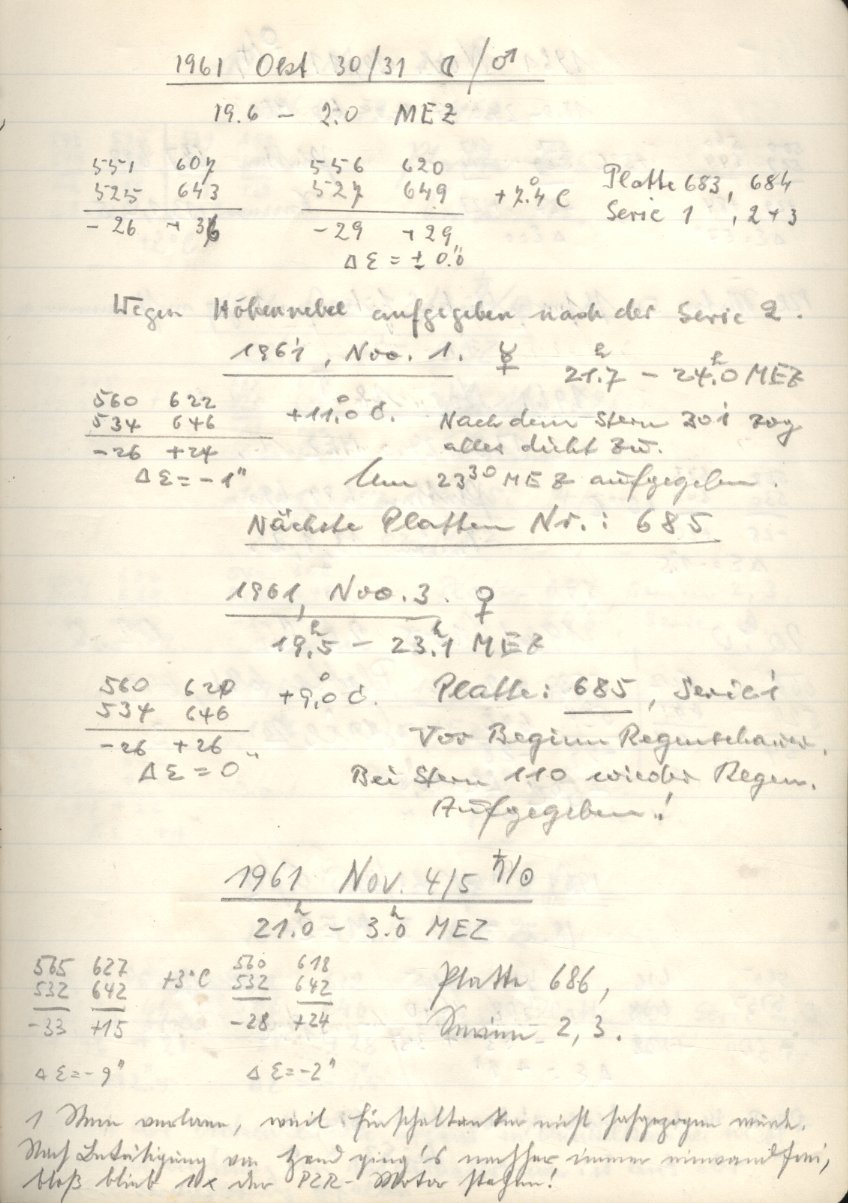 1961 Okt 30/31 ☾/♂
19.6 – 2.0 MEZ
551 607 556 620
525 643 527 649 +7.4° C Platte 683, 684
-26 +36 -29 +29 Serie 1, 2+3
Δ Ɛ = ± 0."0
Wegen Höhennebel aufgegeben nach der Serie 2.
1961, Nov. 1. ☿ 21.ʰ7 – 24.ʰ0 MEZ
560 622
534 646 +11.°0 C. Nach dem Stern 301 zog
-26 +24 alles dicht zu.
Δ Ɛ = -1" Um 23³⁰ MEZ aufgegeben.
Nächste Platten Nr.: 685
1961, Nov. 3. ♀
19.ʰ5 – 23.ʰ1 MEZ
560 620 +9.°0 C. Platte: 685, Serie 1
534 646
-26 +26 Vor Beginn Regenschauer.
Δ Ɛ = 0" Bei Stern 110 wieder Regen.
Aufgegeben!
1961 Nov. 4/5 ♄/☉
21.ʰ0 – 3.ʰ0 MEZ
565 627 +3°C 560 618 Platte 686,
532 642 532 642
-33 +15 -28 +24 Serien 2, 3.
Δ Ɛ = -9" Δ Ɛ = -2"
1 Stern verloren, weil Einschaltanker nicht angezogen wurde.
Nach Betätigung von Hand ging's nachher immer einwandfrei,
bloß blieb 1x der PZR-Motor stehen!